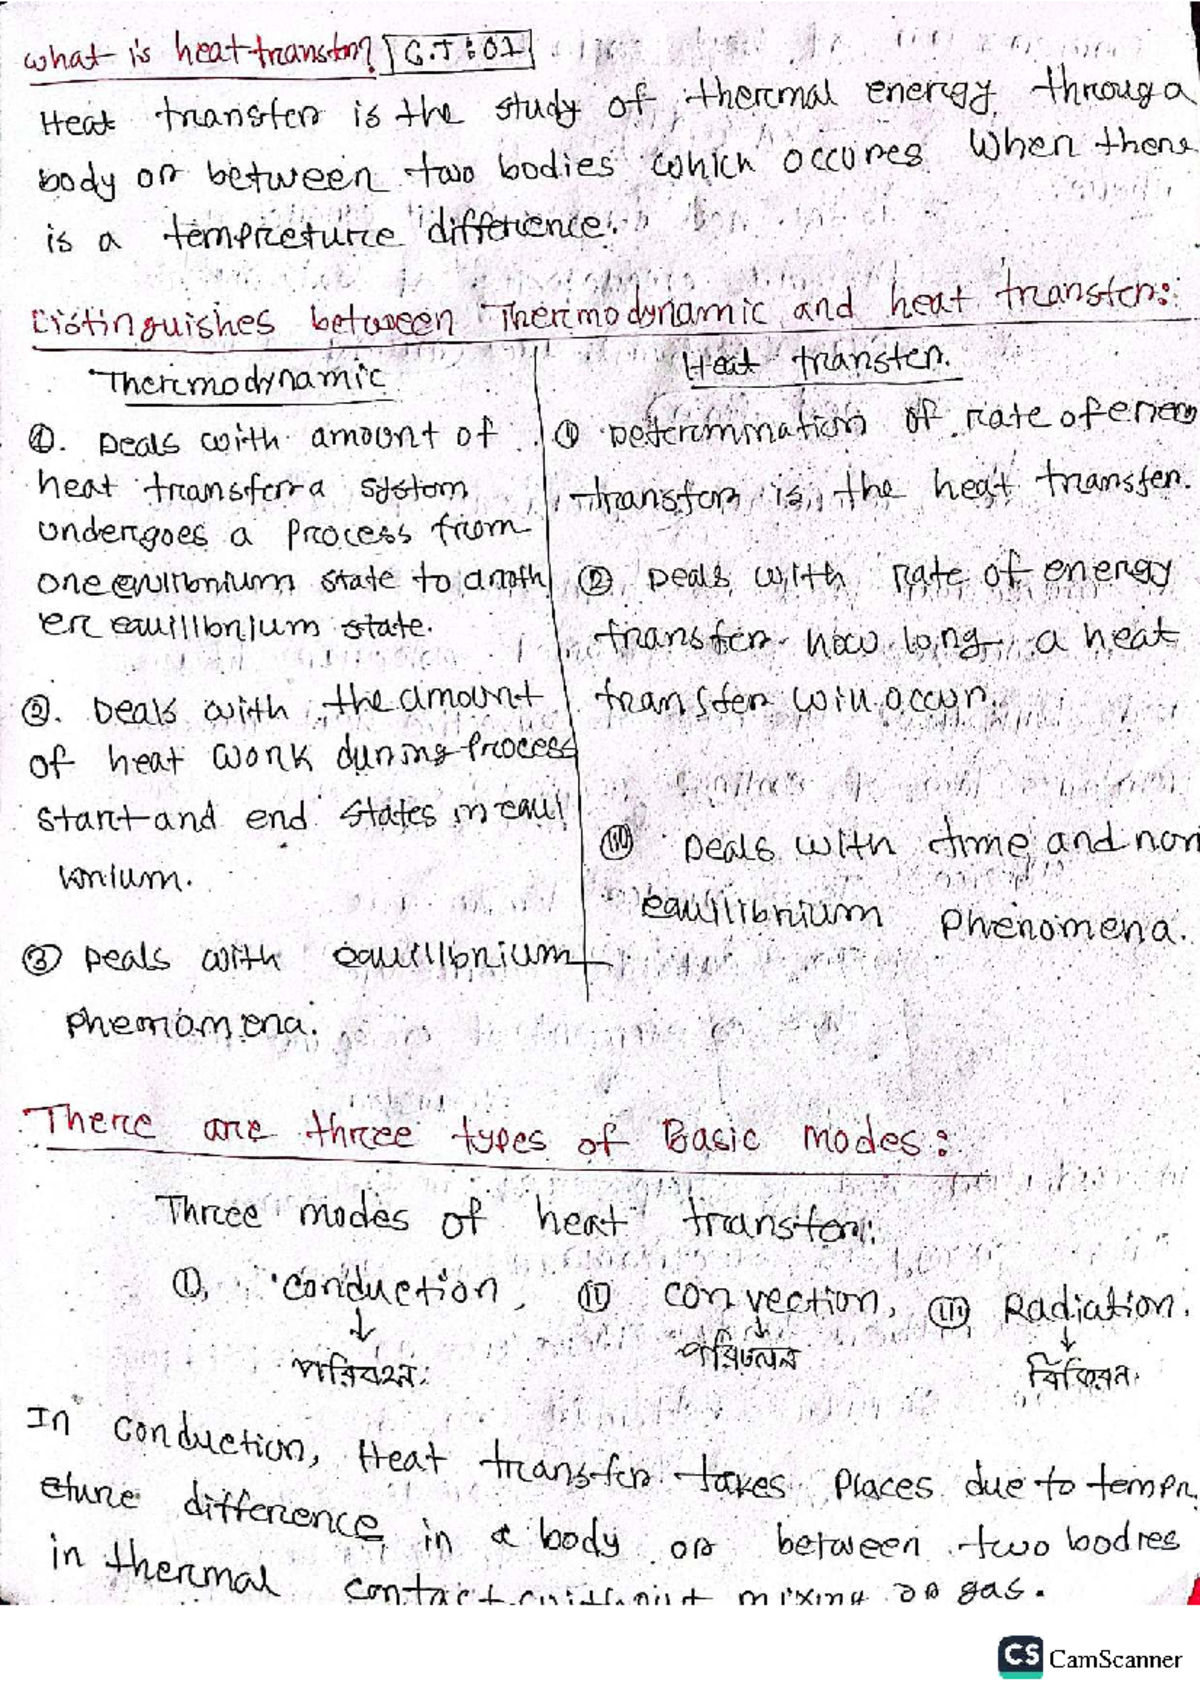 what is heat transfer? C.T:01
Heat transfer is the study of thermal energy through a
body or between two bodies which occures When there
is a tempreture difference.
Distinguishes between Thermodynamic and heat transfer:
Thermodynamic
①. Deals with amount of
heat transfer a system
undergoes a process from
one equilibrium state to anoth
er equilibrium state.
②. Deals with the amount
of heat work during process
start and end states in equil
ibrium.
③ Deals with equilibrium
phenomena.
Heat transfer.
① Determination of rate of energy
transfer is the heat transfer.
② Deals with rate of energy
transfer how long a heat
transfer will occur.
(iii) Deals with time and non
equilibrium phenomena.
There are three types of Basic modes:
Three modes of heat transfer:
①. conduction, (ii) convection, (iii) Radiation.
↓ ↓ ↓
পরিবহন পরিচলন বিকিরন
In conduction, Heat transfer takes places due to tempr
eture difference in a body or between two bodies
in thermal contact without mixing or gas.
CS CamScanner